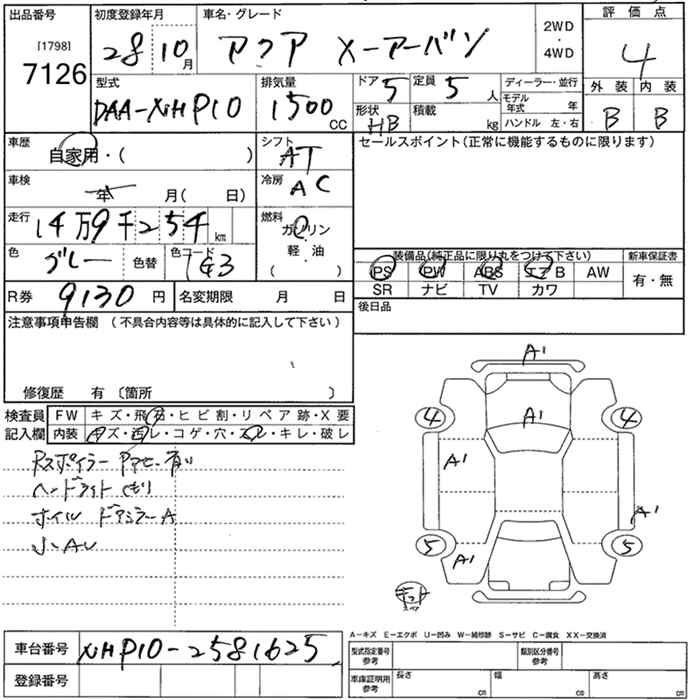 出品番号 初度登録年月 車名・グレード 2WD ・ 4WD 評価点
[1798]
7126 28 10月 アクア X-アーバン 4
型式 排気量 ドア 5 定員 5人 ディーラー・並行 外装 内装
DAA-NHP10 1500CC 形状 HB 積載 kg モデル年式 年 B B
ハンドル 左・右
車歴 自家用・( ) シフト AT セールスポイント(正常に機能するものに限ります)
車検 年 月( 日) 冷房 AC
走行 14万9千254km 燃料 ガソリン
軽・油
( )
色 グレー 色替 色コード 1G3 装備品(純正品に限り丸をつけて下さい) 新車保証書
PS PW ABS エアB AW 有・無
SR ナビ TV カワ
R券 9130円 名変期限 月 日 後日品
注意事項申告欄 (不具合内容等は具体的に記入して下さい)
修復歴 有 〔箇所 〕
検査員 FW キズ・飛石・ヒビ割・リペア跡・X要
記入欄 内装 キズ・汚レ・コゲ・穴・スレ・キレ・破レ
Rスポイラー 有り
ヘードライト くもり
ホイル ドアミラーA
小AU
A1
4 A1 4
A1
A1
5 A1 5
A-キズ E-エクボ U-凹み W-補修跡 S-サビ C-腐食 XX-交換済
車台番号 NHP10-2581625 型式指定番号 参考 類別区分番号 参考
登録番号 車庫証明用 参考 長さ cm 幅 cm 高さ cm